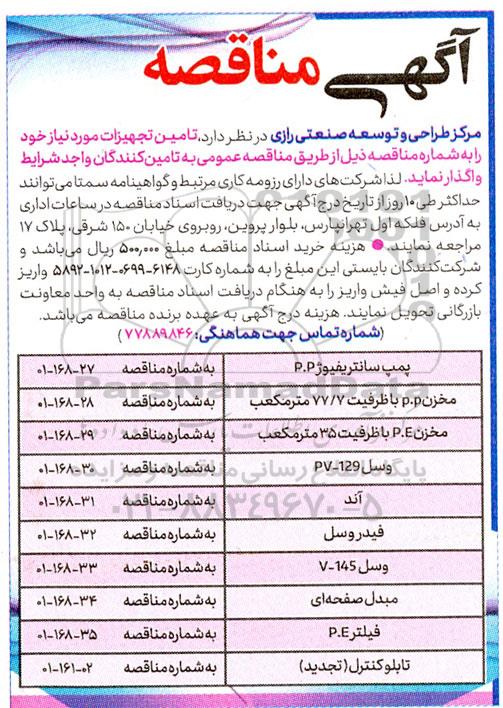 آگهی مناقصه
مرکز طراحی و توسعه صنعتی رازی در نظر دارد، تامین تجهیزات مورد نیاز خود
را به شماره مناقصه ذیل از طریق مناقصه عمومی به تامین کنندگان واجد شرایط
واگذار نماید. لذا شرکت های دارای رزومه کاری مرتبط و گواهینامه سمتا می توانند
حداکثر طی ۱۰ روز از تاریخ درج آگهی جهت دریافت اسناد مناقصه در ساعات اداری
به آدرس فلکه اول تهرانپارس، بلوار پروین، روبروی خیابان ۱۵۰ شرقی، پلاک ۱۷
مراجعه نمایند. ● هزینه خرید اسناد مناقصه مبلغ ۵۰۰,۰۰۰ ریال می باشد و
شرکت کنندگان بایستی این مبلغ را به شماره کارت ۶۱۴۸-۰۶۹۹-۱۰۱۲-۵۸۹۲ واریز
کرده و اصل فیش واریز را به هنگام دریافت اسناد مناقصه به واحد معاونت
بازرگانی تحویل نمایند. هزینه درج آگهی به عهده برنده مناقصه می باشد.
(شماره تماس جهت هماهنگی: ۷۷۸۸۹۸۴۶)
پمپ سانتریفیوژ P.P به شماره مناقصه ۲۷-۱۶۸-۰۱
مخزن p.p با ظرفیت ۷۷/۷ مترمکعب به شماره مناقصه ۲۸-۱۶۸-۰۱
مخزن P.E با ظرفیت ۳۵ مترمکعب به شماره مناقصه ۲۹-۱۶۸-۰۱
وسل PV-129 به شماره مناقصه ۳۰-۱۶۸-۰۱
آند به شماره مناقصه ۳۱-۱۶۸-۰۱
فیدر وسل به شماره مناقصه ۳۲-۱۶۸-۰۱
وسل V-145 به شماره مناقصه ۳۳-۱۶۸-۰۱
مبدل صفحه ای به شماره مناقصه ۳۴-۱۶۸-۰۱
فیلتر P.E به شماره مناقصه ۳۵-۱۶۸-۰۱
تابلو کنترل (تجدید) به شماره مناقصه ۰۲-۱۶۱-۰۱
ParsNamadData
پایگاه اطلاع رسانی مناقصه و مزایده
۰۲۱-۸۸۳۴۹۶۷۰-۵